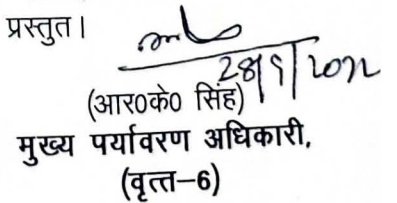 प्रस्तुत।
28/9/2022
(आर०के० सिंह)
मुख्य पर्यावरण अधिकारी,
(वृत्त-6)